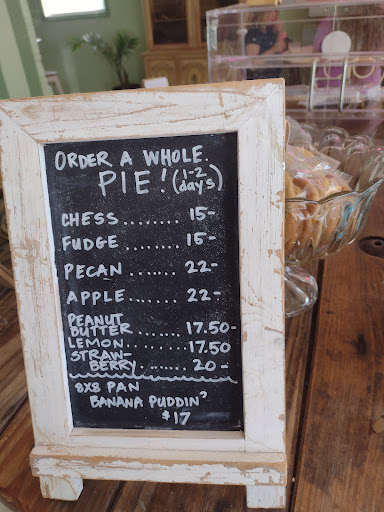 ORDER A WHOLE
PIE! (1-2 days)
CHESS........ 15-
FUDGE ........ 15-
PECAN ....... 22-
APPLE....... 22-
PEANUT
BUTTER ...... 17.50-
LEMON......... 17.50
STRAW-
BERRY ...... 20-
8X8 PAN
BANANA PUDDIN'
$17